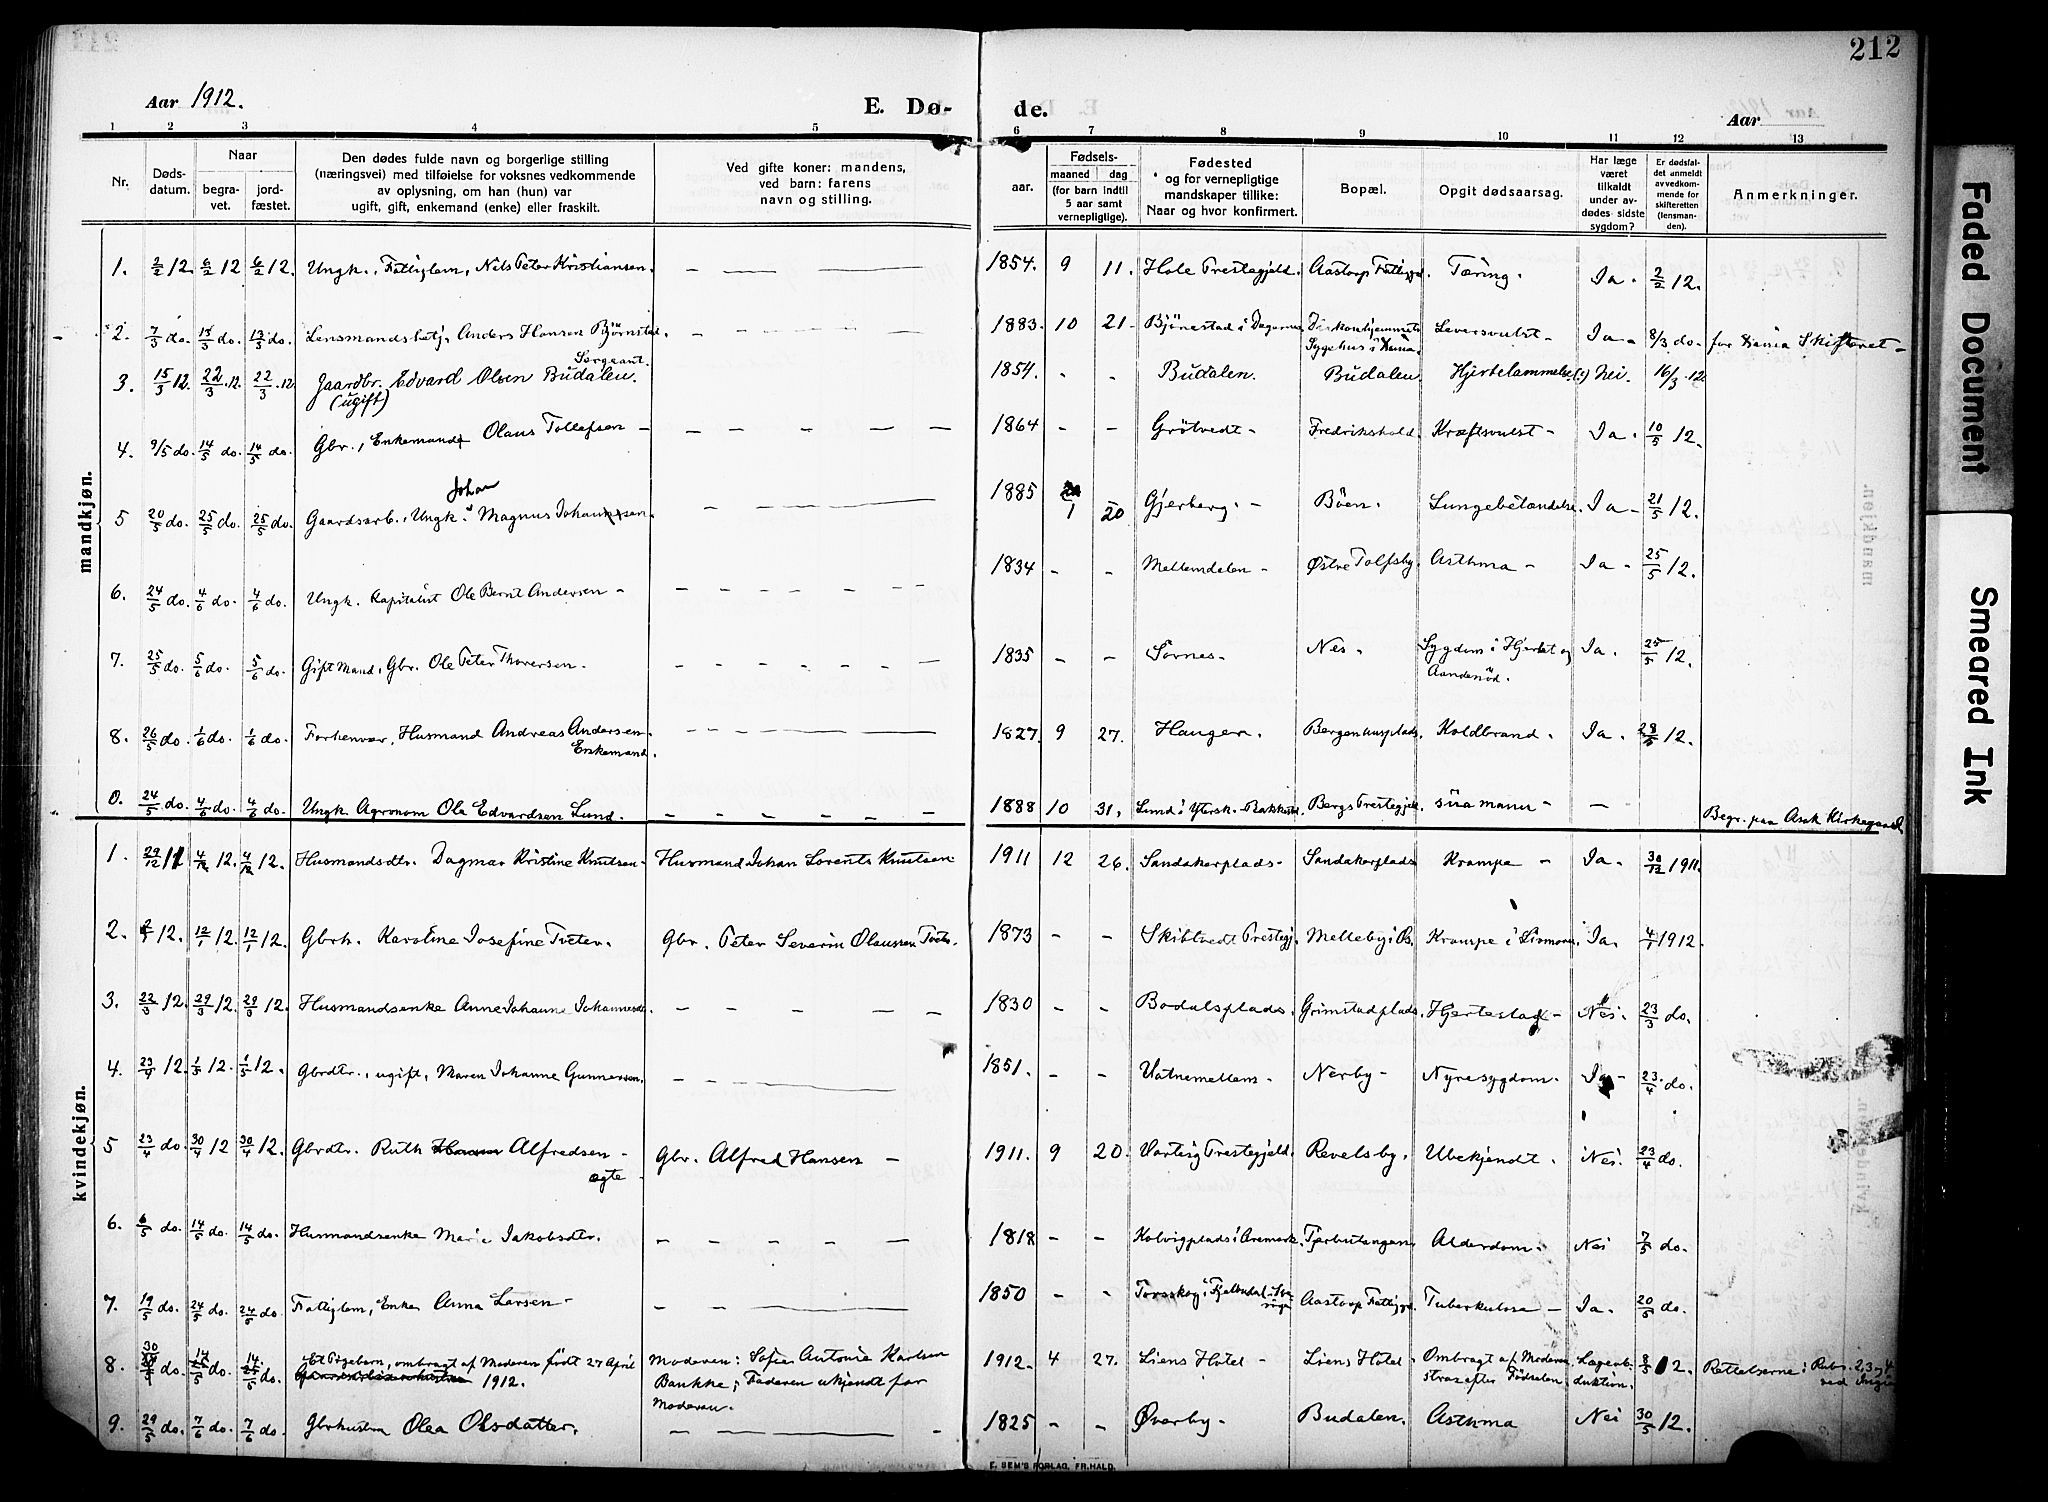 212
Aar 1912.
E. Dø-
de.
Aar
1 2 3 4 5 6 7 8 9 10 11 12 13
Nr.
Døds-datum.
Naar
begra-vet.
jord-fæstet.
Den dødes fulde navn og borgerlige stilling
(næringsvei) med tilføielse for voksnes vedkommende
av oplysning, om han (hun) var
ugift, gift, enkemand (enke) eller fraskilt.
Ved gifte koner: mandens,
ved barn: farens
navn og stilling.
aar.
Fødsels-
maaned dag
(for barn indtil
5 aar samt
vernepligtige).
Fødested
og for vernepligtige
mandskaper tillike:
Naar og hvor konfirmert.
Bopæl.
Opgit dødsaarsag.
Har læge
været
tilkaldt
under av-
dødes sidste
sygdom?
Er dødsfal-
det anmeldt
av vedkom-
mende for
skifteretten
(lensman-
den).
Anmerkninger.
mandkjøn.
1. 2/2 12. 6/2 12 6/2 12. Ungk., Fattiglem, Nils Peter Kristiansen. 1854. 9 11. Hole Prestegjeld. Aastorp Fattiggd. Tæring. Ja. 2/2 12.
2. 7/3 do. 13/3 do. 13/3 do. Lensmandsbetj. Anders Hansen Bjørnstad. 1883. 10 21. Bjørnestad i Degernes Diakonhjemmets Sygehus i Xania. Leversvulst. Ja. 8/3 do. for Xania Skifteret
3. 15/3 12. 22/3 12. 22/3 12. Gaardbr. Edvard Olsen Budalen. Sergeant. (ugift) 1854. - - Budalen. Budalen. Hjertelammelse (?) Nei. 16/3 12.
4. 9/5 do. 14/5 do. 14/5 do. Gbr., Enkemand Olaus Tollefsen 1864 - - Grötvedt. Fredrikshald. Kræftsvulst. Ja. 10/5 12.
5 20/5 do. 25/5 do. 25/5 do. Gaardsarb., Ungk. Johan Magnus Johansen. 1885 1 20 Gjerberg. Böen. Lungebetændelse. Ja 21/5 12.
6. 24/5 do. 4/6 do. 4/6 do. Ungk. Kapitalist Ole Bernt Andersen 1834 - - Mellemdalen Østre Tolfsby. Asthma Ja 25/5 12.
7. 25/5 do. 5/6 do. 5/6 do. Gift Mand, Gbr. Ole Peter Thoresen. 1835 - - Sörnes. Nes. Sygdom i Hjertet og Aandenöd. Ja. 25/5 12.
8. 26/5 do. 1/6 do. 1/6 do. Forhenvær. Husmand Andreas Andersen Enkemand. 1827. 9 27. Haugen. Bergenhusplads. Koldbrand. Ja. 28/5 12.
0. 24/5 do. 4/6 do. 4/6 do. Ungk. Agronom Ole Edvardsen Lund. 1888 10 31. Lund i Ytersk. Rakkestd. Bergs Prestegjeld. Begr. paa Asak Kirkegaard
kvindekjøn.
1. 29/12 11 4/1 12. 4/1 12. Husmandsdtr. Dagmar Kristine Knutsen Husmand Johan Lorents Knutsen 1911 12 26. Sandakerplads Sandakerplads Krampe Ja. 30/12 1911.
2. 12. 12/1 12. 12/1 12. Gbrh. Karoline Josefine Tveter. Gbr. Peter Severin Olaussen Tvete. 1873 - - Skibtvedt Prestegj. Melleby i B. Krampe i Livmoren. Ja. 4/1 1912.
3. 22/3 12. 29/3 12. 29/3 12. Husmandsenke Anne Johanne Johannesdtr. 1830 - - Bodalsplads. Grimstadplads. Hjerteslag Nei. 23/3 do.
4. 23/4 12. 1/5 12. 1/5 12. Gbrdtr., ugift, Maren Johanne Gunnersen. 1851. - - Vatnemellem. Nerby Nyresygdom. Ja 23/4 do.
5 23/4 do. 30/4 12 30/4 12. Gbrdtr. Ruth Alfredsen ægte Gbr. Alfred Hansen 1911. 9 20. Varteig Prestegjeld. Revelsby. Ubekjendt. Nei. 23/4 do.
6. 6/5 do. 14/5 do. 14/5 do. Husmandsenke Marie Jakobsdtr. 1818 - - Kolvigplads i Aremark. Tjerbutangen. Alderdom. Nei 7/5 do.
7. 19/5 do. 24/5 do. 24/5 do. Fattiglem, Enke Anna Larsen 1850 - - Torsskog i Aastorp Fattiggd. Tuberkulose Ja. 20/5 do.
8. 30/4 do. 14/5 do. 14/5 do. Et Pigebarn, ombragt af Moderen født 27 April 1912. Moderen: Sofie Antonie Karlsen Bankke; Faderen ukjendt for Moderen. 1912. 4 27. Liens Hotel Liens Hotel Ombragt af Moderen strax efter Fødselen. Lægeobduktion. 8/5 12. Rettelserne i Rubr. 2, 3 og 4
9. 29/5 do. 7/6 do. 7/6 do. Gbrhustru Olea Olsdatter. 1825 - - Øverby Budalen. Asthma Nei 30/5 12.
E. SEM'S FORLAG, FR.HALD.
Faded Document
Smeared Ink